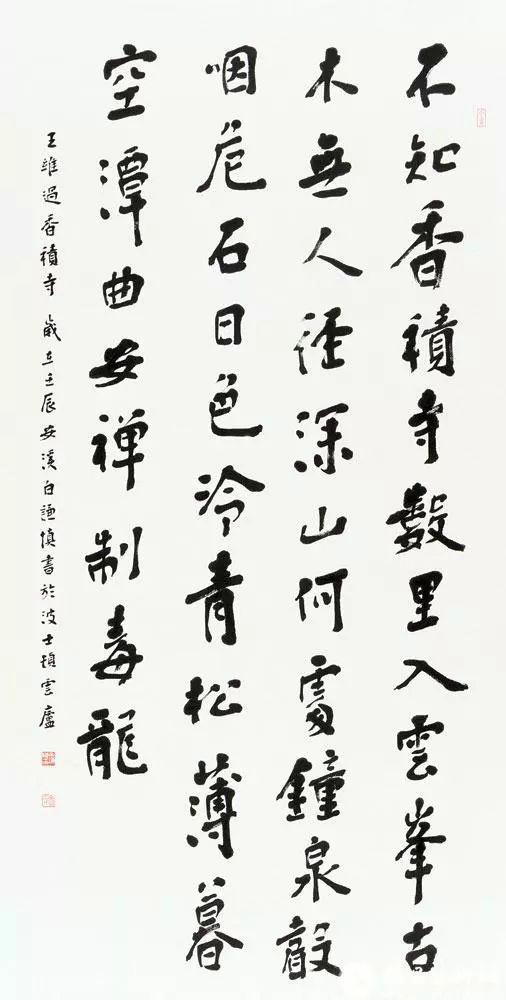 不知香積寺數里入雲峯古
木無人徑深山何處鐘泉聲
咽危石日色冷青松薄暮
空潭曲安禪制毒龍
王維過香積寺 歲在壬辰安溪白謙慎書於波士頓雲廬